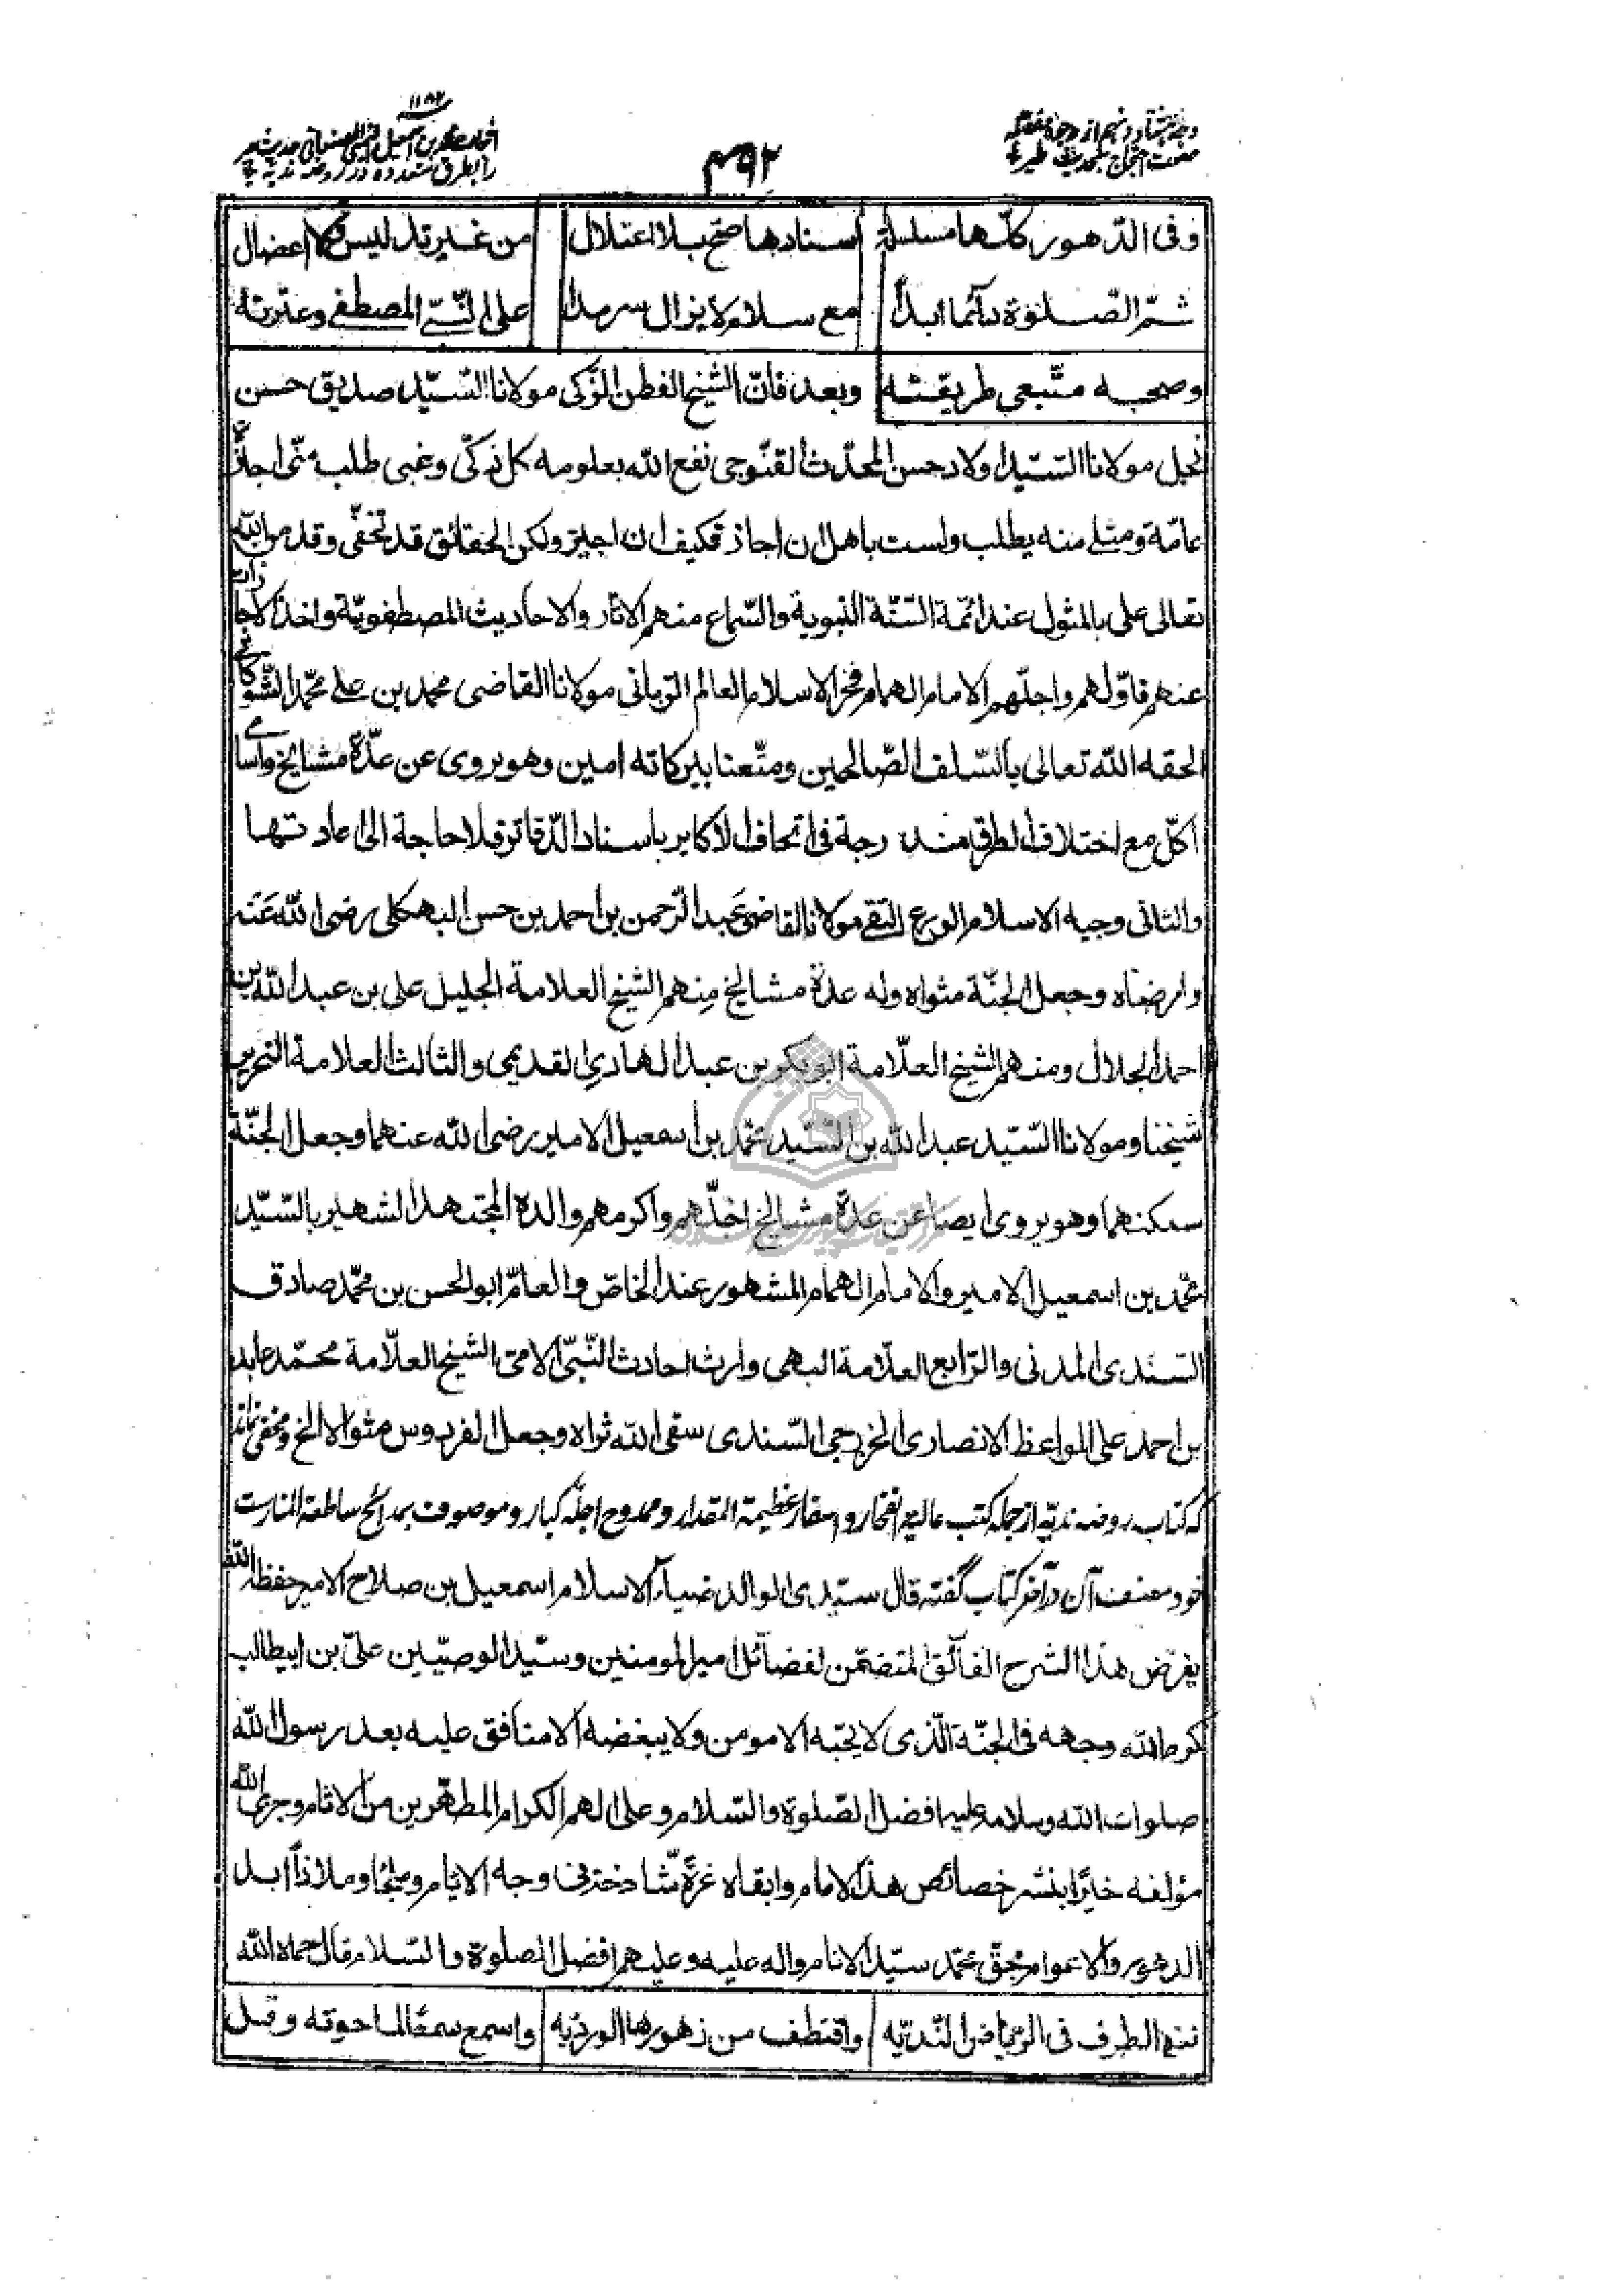 ۴۹۲
۱۱۸۲
وفى الدّهور كلّها مسلسلة اسنادها صحّ بلا اعتلال من غير تدليس ولا اعضال
ثمّ الصّلوة دائما ابداً مع سلام لا يزال سرمدا على النّبىّ المصطفى وعترته
وصحبه متّبعى طريقته وبعد فانّ الشيخ الفطن الزّكى مولانا السّيّد صديق حسن
نجل مولانا السّيّد اولاد حسن المحدّث القنّوجى نفع الله بعلومه كل زكّى وغبى طلب منّى اجازة
عامّة ومثلى منه يطلب ولست باهل ان اجاز فكيف ان اجيز ولكن الحقائق قد تخفّى وقد من الله
تعالى على بالمثول عند ائمة السّنّة النبوية والسّماع منهم الاثار والاحاديث المصطفويّة واخذ الاجازات
عنهم فاوّلهم واجلّهم الامام الهمام فخر الاسلام العالم الرّبانى مولانا القاضى محمد بن على محمّد الشّوكانى
الحقه الله تعالى بالسّلف الصّالحين ومتّعنا ببركاته امين وهو يروى عن عدّة مشايخ واسامى
اكلّ مع اختلاف الطرق مندرجة فى اتحاف الاكابر باسناد الدّفاتر فلا حاجة الى اعادتها
والثانى وجيه الاسلام الورع التقى مولانا القاضى عبد الرّحمن بن احمد بن حسن البهكلى رضى الله عنه
وارضاه وجعل الجنّة مثواه وله عدة مشايخ منهم الشيخ العلامة الجليل على بن عبد الله بن
احمد الجلال ومنهم الشيخ العلّامة ابو بكر بن عبد الهادى القديمى والثالث العلامة النحرير
شيخنا ومولانا السّيّد عبد الله بن السّيّد محمّد بن اسمعيل الامير رضى الله عنهما وجعل الجنّة
سكنهما وهو يروى ايضا عن عدة مشايخ اجلّهم واكرمهم والده المجتهد الشهير بالسّيّد
محمّد بن اسمعيل الامير والامام الهمام المشهور عند الخاصّ والعامّ ابو الحسن بن محمّد صادق
السّندى المدنى والرّابع العلّامة البهى وارث احادث النّبىّ الامّى الشيخ العلّامة محمّد عابد
بن احمد على الواعظ الانصارى الخزرجى السّندى سقى الله ثراه وجعل الفردوس مثواه الخ ومخفى نماند
كه كتاب روضه نديّه از جمله كتب عالية الفخار واسفار عظيمة المقدار وممدوح اجلّه كبار وموصوف بمدائح ساطعة المنارست
خود مصنف آن در آخر كتاب گفته قال سيّدى الوالد ضياء الاسلام اسمعيل بن صلاح الامير حفظه الله
يقرّض هذا الشرح الفائق المتضمّن لفضائل امير المومنين وسيّد الوصيّين علىّ بن ابيطالب
كرم الله وجهه فى الجنّة الّذى لا يحبّه الا مومن ولا يبغضه الا منافق عليه بعد رسول الله
صلوات الله وسلامه عليه افضل الصّلوة والسّلام وعلى الهم الكرام المطهّرين من الاثام وجزى الله
مؤلفه خيرًا بنشر خصائص هذا الامام وابقاه غرّة شادخة فى وجه الايّام وملجأ وملاذاً ابد
الدهور والاعوام بحقّ محمّد سيّد الانام واله عليه وعليهم افضل الصلوة والسّلام قال حماه الله
نزه الطرف فى الرياض النّديّه واقتطف من زهورها الورديّه واسمع سمعًا لما حوته وقل